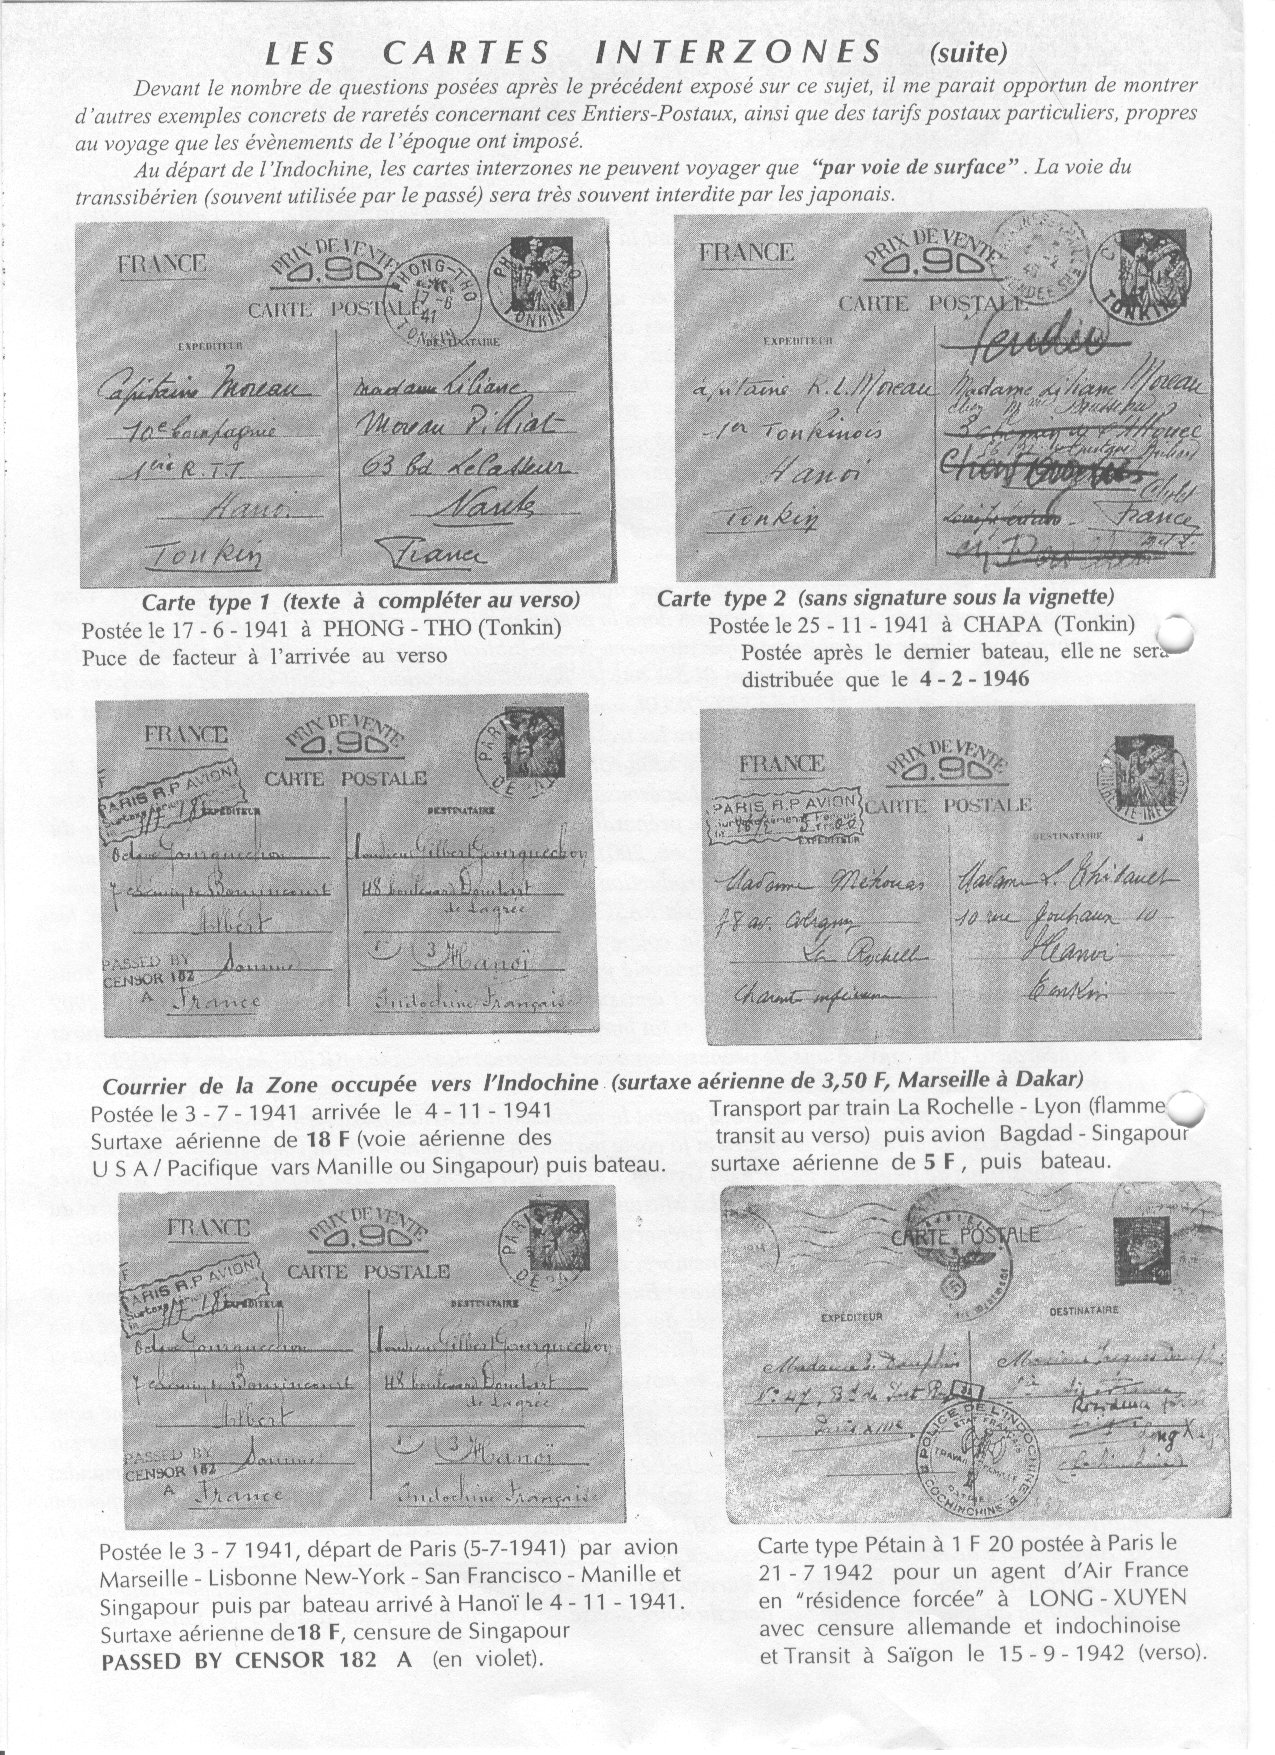 LES CARTES INTERZONES (suite)
Devant le nombre de questions posées après le précédent exposé sur ce sujet, il me parait opportun de montrer
d'autres exemples concrets de raretés concernant ces Entiers-Postaux, ainsi que des tarifs postaux particuliers, propres
au voyage que les évènements de l'époque ont imposé.
Au départ de l'Indochine, les cartes interzones ne peuvent voyager que “par voie de surface” . La voie du
transsibérien (souvent utilisée par le passé) sera très souvent interdite par les japonais.
FRANCE
PRIX DE VENTE
0,90
CARTE POSTALE
PHONG-THO
17-6
41
TONKIN
EXPEDITEUR
DESTINATAIRE
Capitaine Moreau
10e Compagnie
1ère R.T.T
Hanoi
Tonkin
Madame Liliane
Moreau
63 bd
Nantes
France
FRANCE
PRIX DE VENTE
0,90
CARTE POSTALE
TONKIN
EXPEDITEUR
Vendée
Capitaine R.L. Moreau
1er Tonkinois
Hanoi
Tonkin
Madame Liliane Moreau
France
Carte type 1 (texte à compléter au verso)
Postée le 17 - 6 - 1941 à PHONG - THO (Tonkin)
Puce de facteur à l'arrivée au verso
Carte type 2 (sans signature sous la vignette)
Postée le 25 - 11 - 1941 à CHAPA (Tonkin)
Postée après le dernier bateau, elle ne sera
distribuée que le 4 - 2 - 1946
FRANCE
PRIX DE VENTE
0,90
CARTE POSTALE
PARIS R.P AVION
EXPEDITEUR
DESTINATAIRE
Octave Gourguechon
Albert
Somme
France
Monsieur Gilbert Gourguechon
48 boulevard Doudart
de Lagrée
Hanoï
Indochine Française
PASSED BY
CENSOR 182
A
FRANCE
PRIX DE VENTE
0,90
CARTE POSTALE
PARIS R.P AVION
EXPEDITEUR
DESTINATAIRE
Madame Méhouas
78 av. Coligny
La Rochelle
Charente inférieure
Madame L. Thibault
10 rue
Hanoi
Tonkin
Courrier de la Zone occupée vers l'Indochine (surtaxe aérienne de 3,50 F, Marseille à Dakar)
Postée le 3 - 7 - 1941 arrivée le 4 - 11 - 1941
Surtaxe aérienne de 18 F (voie aérienne des
U S A / Pacifique vars Manille ou Singapour) puis bateau.
Transport par train La Rochelle - Lyon (flamme
transit au verso) puis avion Bagdad - Singapour
surtaxe aérienne de 5 F , puis bateau.
FRANCE
PRIX DE VENTE
0,90
CARTE POSTALE
PARIS R.P AVION
EXPEDITEUR
DESTINATAIRE
Octave Gourguechon
Albert
Somme
France
Monsieur Gilbert Gourguechon
48 boulevard Doudart
de Lagrée
Hanoï
Indochine Française
PASSED BY
CENSOR 182
A
CARTE POSTALE
EXPÉDITEUR
DESTINATAIRE
Résidence forcée
Long X
POLICE DE L'INDOCHINE
ETAT FRANÇAIS
COCHINCHINE
Postée le 3 - 7 1941, départ de Paris (5-7-1941) par avion
Marseille - Lisbonne New-York - San Francisco - Manille et
Singapour puis par bateau arrivé à Hanoï le 4 - 11 - 1941.
Surtaxe aérienne de18 F, censure de Singapour
PASSED BY CENSOR 182 A (en violet).
Carte type Pétain à 1 F 20 postée à Paris le
21 - 7 1942 pour un agent d'Air France
en “résidence forcée” à LONG - XUYEN
avec censure allemande et indochinoise
et Transit à Saïgon le 15 - 9 - 1942 (verso).